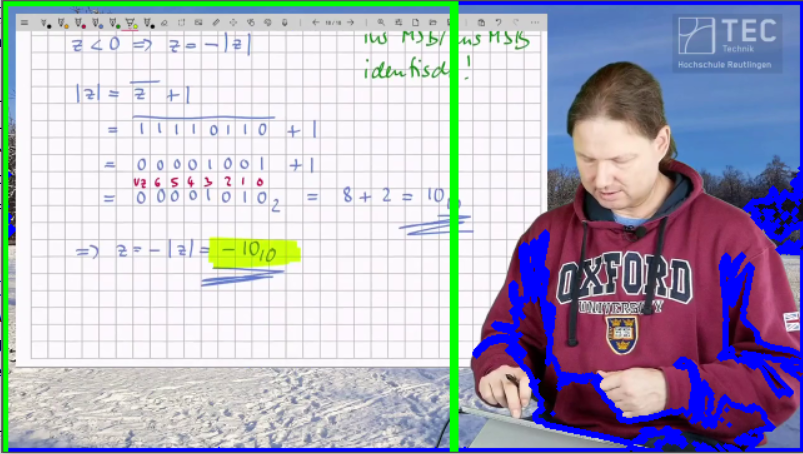 18 / 18
z < 0 ⇒ z = -|z|
identisch!
|z| = z̅ + 1
= 1 1 1 1 0 1 1 0 + 1
= 0 0 0 0 1 0 0 1 + 1
VZ 6 5 4 3 2 1 0
= 0 0 0 0 1 0 1 0₂ = 8 + 2 = 10₁₀
⇒ z = -|z| = -10₁₀
TEC
Technik
Hochschule Reutlingen
OXFORD
UNIVERSITY